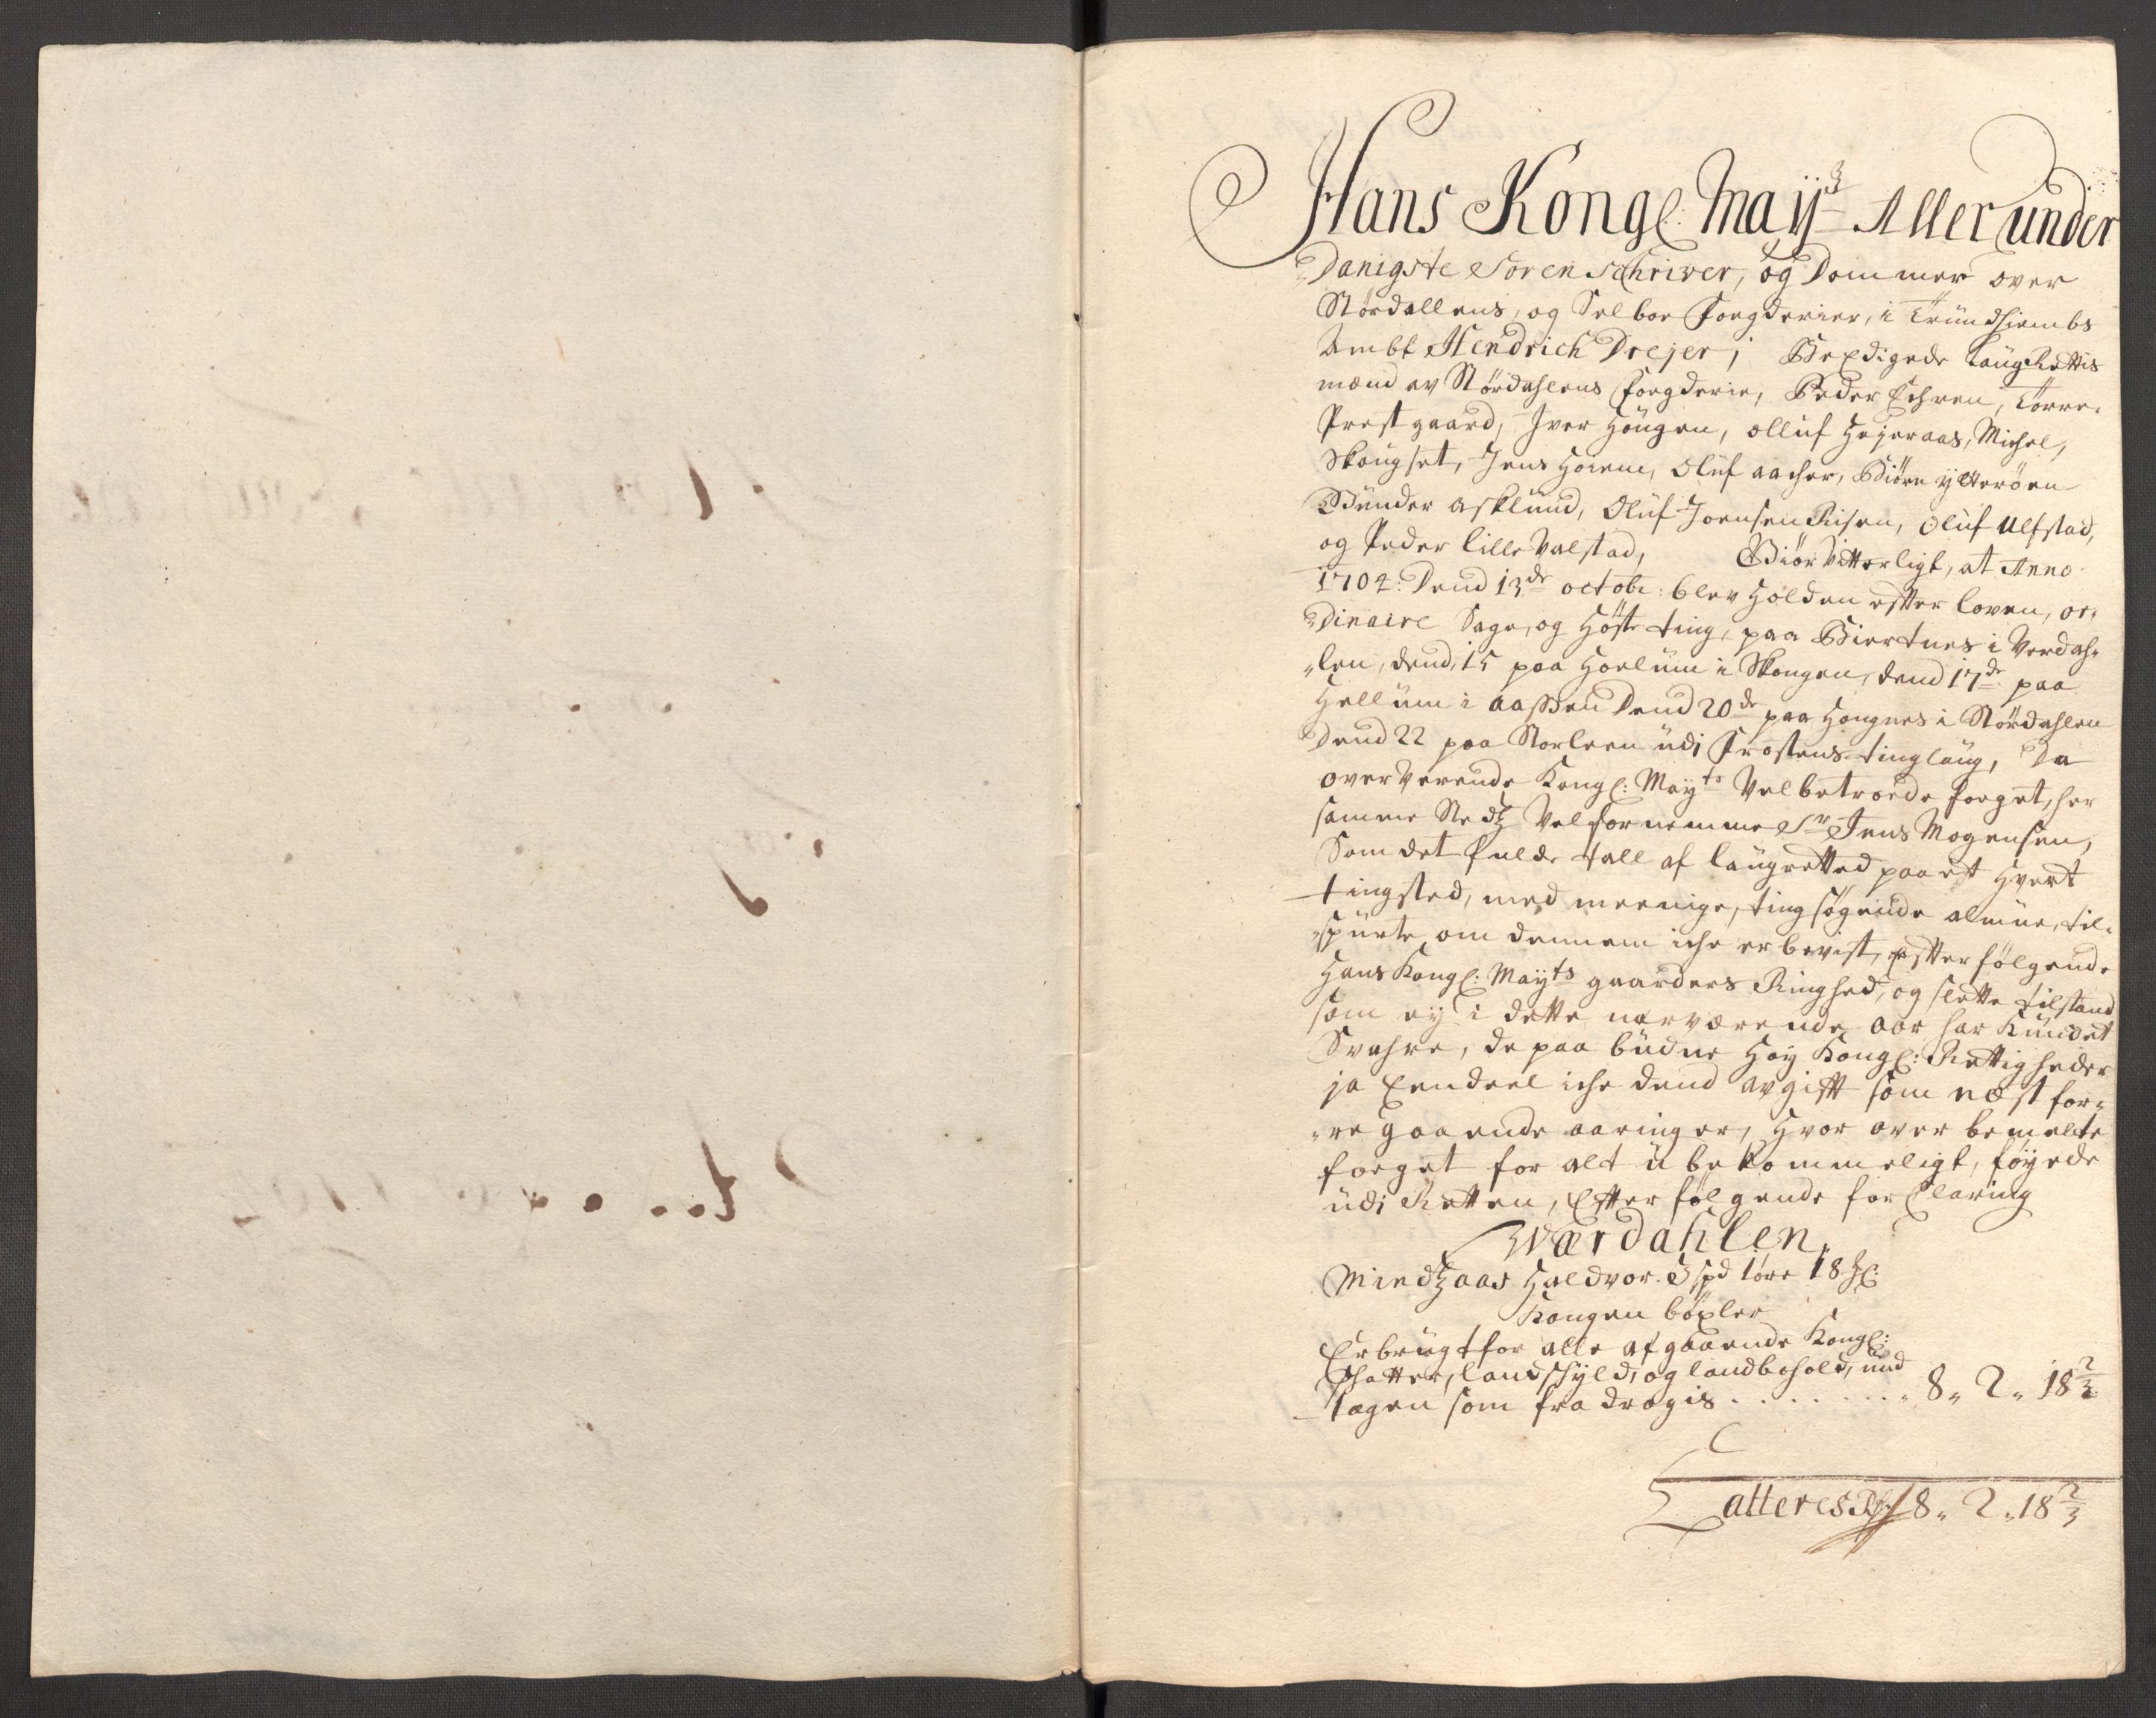 Hans Kongl: Mayts Aller under
„Danigste Sorenschriver, og Dommer over
Stördallens, og Selboe Fogderier, i Trundhiembs
Ambt Hendrich Drejer; Beædigede LaugRettis
mænd av Stördahlens Fogderie, Peder Echren, Torre„
Prestgaard, Iver Hougen, olluf Hejeraas, Michel,
Skougset, Jens Hoiem, Oluf aacher, Biörn ytteröen
Gunder asklund, Oluf Joensen Risen, Oluf Ulfstad,
og Peder lille Valstad, Giör Vitterligt, at Anno
1704: Dend 13de octobr: blev Holden efter loven, or„
„dinaire Sage, og Höste ting, paa Biertnes i Verdah„
„len, dend, 15 paa Hoelum i Skougen, dend 17de paa
Hellum i aassen Dend 20de paa Hougnes i Stördahlen
Dend 22 paa Norleen udi Frostens tinglaug, Da
overVerende Kongl: Mayts Velbetroede foeget, her
samme Stedtz Velfornemme Sr Jens Mogensen,
Som det fulde tall af laugretted paa et Hvert
tingsted, med meenige, tingsögende almue, til„
„spurte, om dennem iche er bevist, efterfölgende
Hans Kongl: Mayts gaarders Ringhed, og slette tilstand
som ey i dette nærværende aar har Kundet
Svahre, de paa budne Höy Kongl: Rettigheder
ja Eendeel iche dend avgift som næst for„
„re gaaende aaringer, Hvor over bemelte
foeget for alt ubekommeligt, föyede
udi Retten, Efter fölgende forClaring
Værdahlen
Mindtzaas Haldvor 3 spd 1öre 18 ℔:
Kongen böxler
Erbrugt for alle afgaaende Kongl:
Schatter, landschyld, og landbohold, und
tagen som fra drages . . . . . . . . 8„ 2„ 18 2/3
Latteres Rdr 8„ 2„ 18 2/3